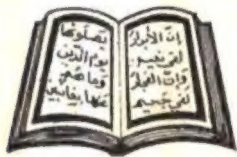 إنّ الأبرار
لفي نعيم
وإنّ الفجار
لفي جحيم
يصلونها
يوم الدين
وما هم
عنها بغائبين